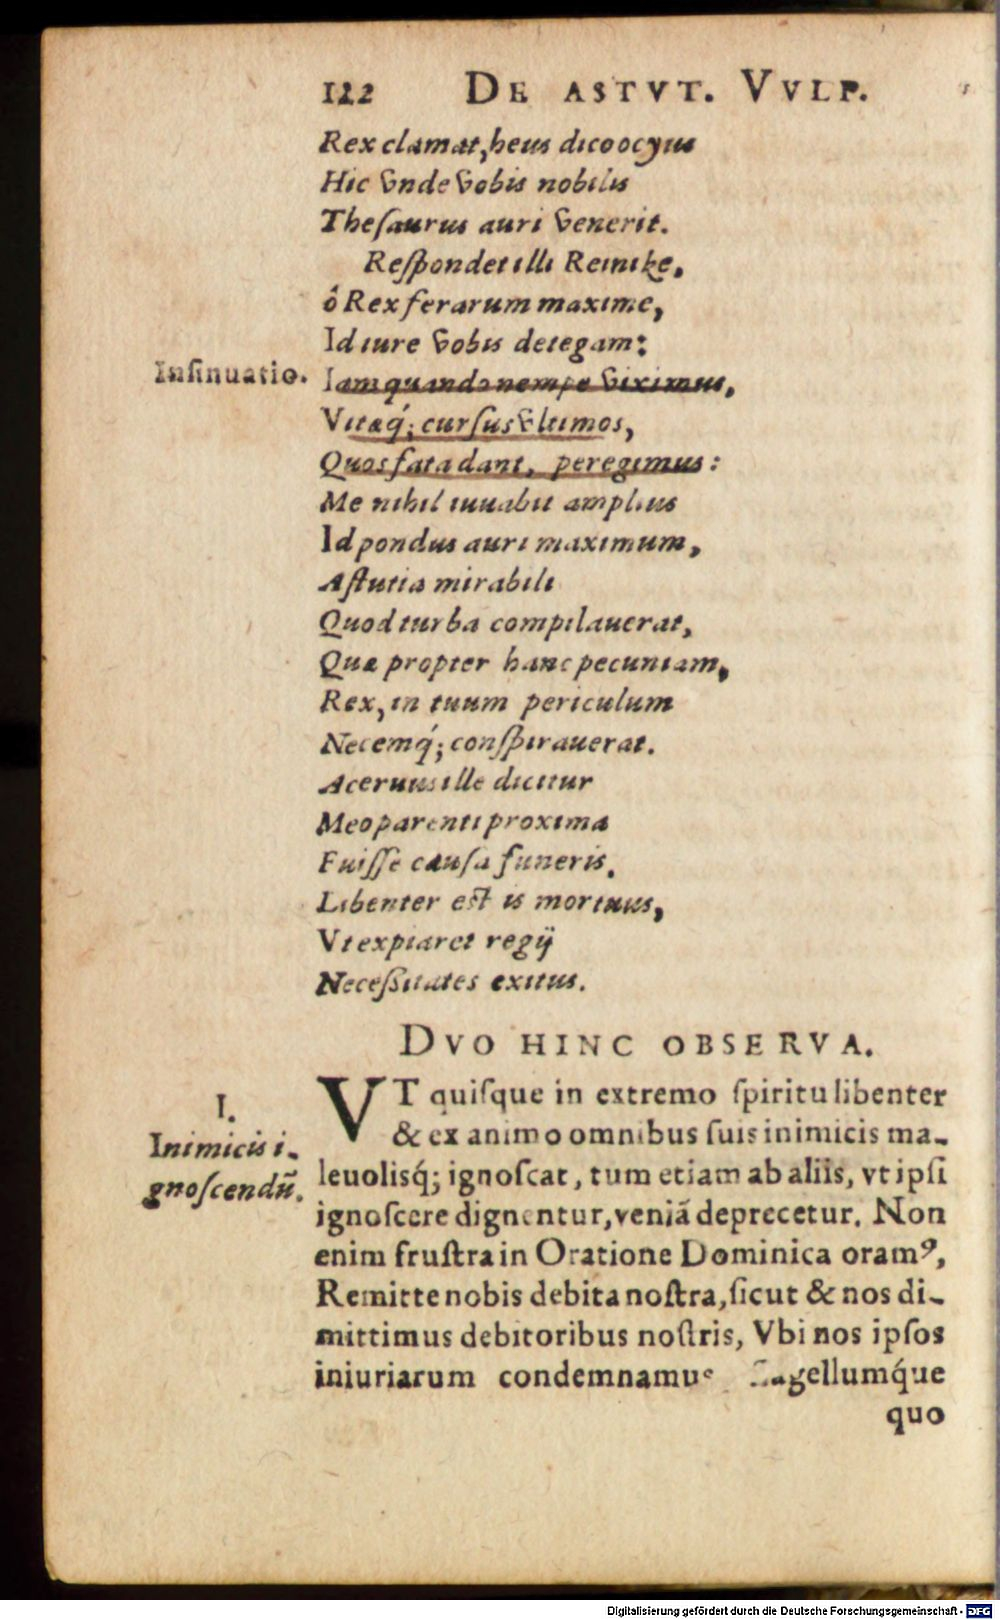 122 DE ASTVT. VVLP.
Rex clamat, heus dico ocyus
Hic vnde vobis nobilis
Theſaurus auri venerit.
Reſpondet illi Reinike,
ô Rex ferarum maxime,
Id iure vobis detegam:
Inſinuatio.
Iam quando nempe viximus,
Vitæq́; curſus vltimos,
Quos fata dant, peregimus:
Me nihil iuuabit amplius
Id pondus auri maximum,
Aſtutia mirabili
Quod turba compilauerat,
Quæ propter hanc pecuniam,
Rex, in tuum periculum
Necemq́; conſpirauerat.
Aceruus ille dicitur
Meo parenti proxima
Fuiſſe cauſa funeris.
Libenter eſt is mortuus,
Vt expiaret regij
Neceſsitates exitus.
DVO HINC OBSERVA.
I.
Inimicis i-
gnoſcendũ.
VT quiſque in extremo ſpiritu libenter
& ex animo omnibus ſuis inimicis ma-
leuolisq́; ignoſcat, tum etiam ab aliis, vt ipſi
ignoſcere dignentur, veniã deprecetur. Non
enim fruſtra in Oratione Dominica oramꝰ,
Remitte nobis debita noſtra, ſicut & nos di-
mittimus debitoribus noſtris, Vbi nos ipſos
iniuriarum condemnamus flagellumq́ue
quo
Digitalisierung gefördert durch die Deutsche Forschungsgemeinschaft - DFG